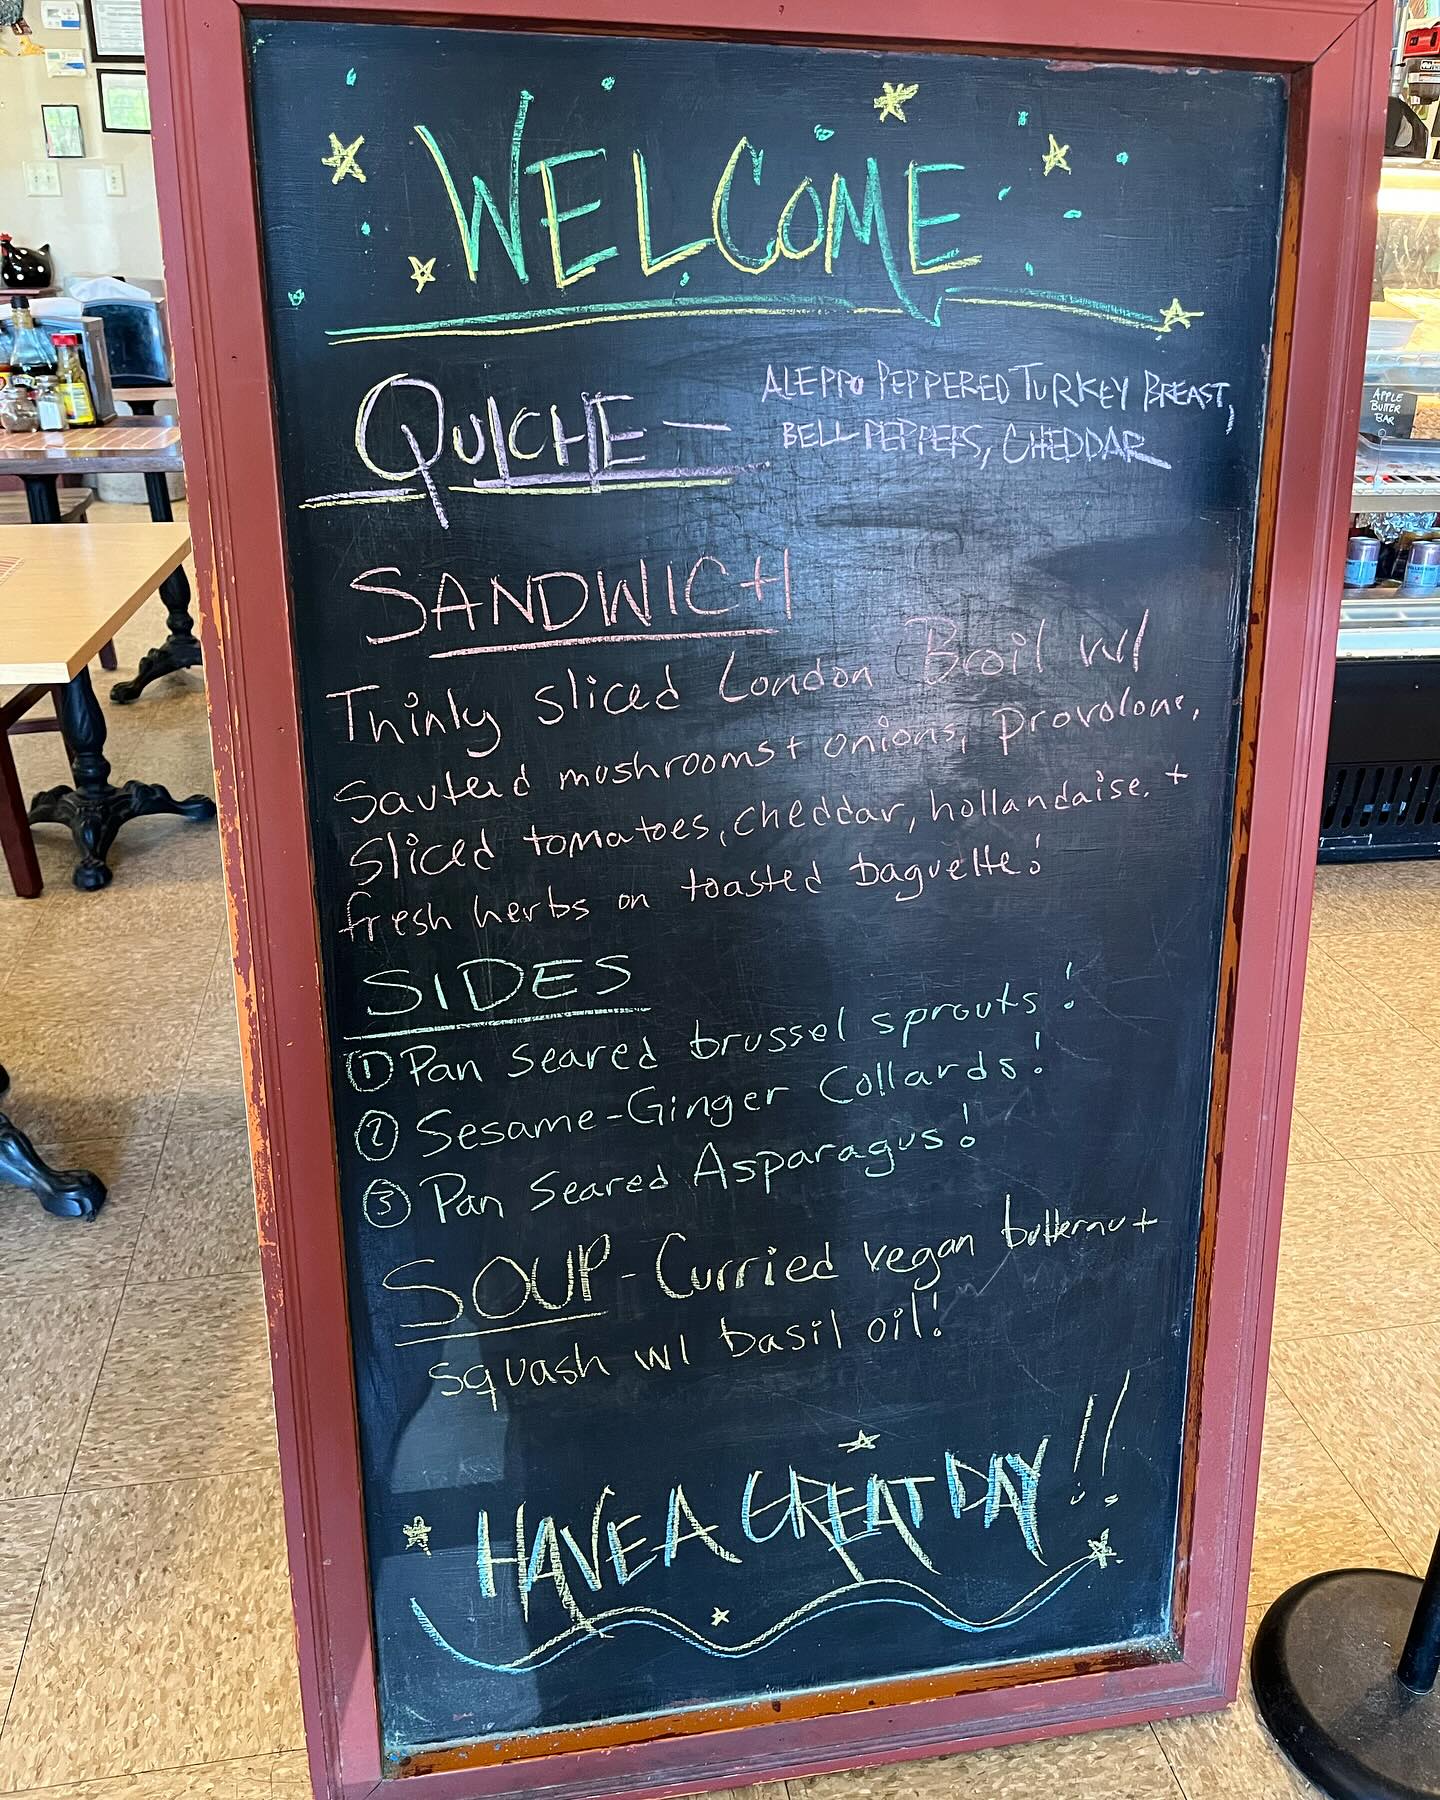 WELCOME
QUICHE — ALEPPO PEPPERED TURKEY BREAST,
BELL PEPPERS, CHEDDAR
SANDWICH
Thinly sliced London Broil w/
Sauteed mushrooms + onions, Provolone,
Sliced tomatoes, cheddar, hollandaise, +
fresh herbs on toasted baguette!
SIDES
① Pan Seared brussel sprouts!
② Sesame-Ginger Collards!
③ Pan Seared Asparagus!
SOUP - Curried vegan butternut
squash w/ basil oil!
HAVE A GREAT DAY!!
APPLE
BUTTER
BAR